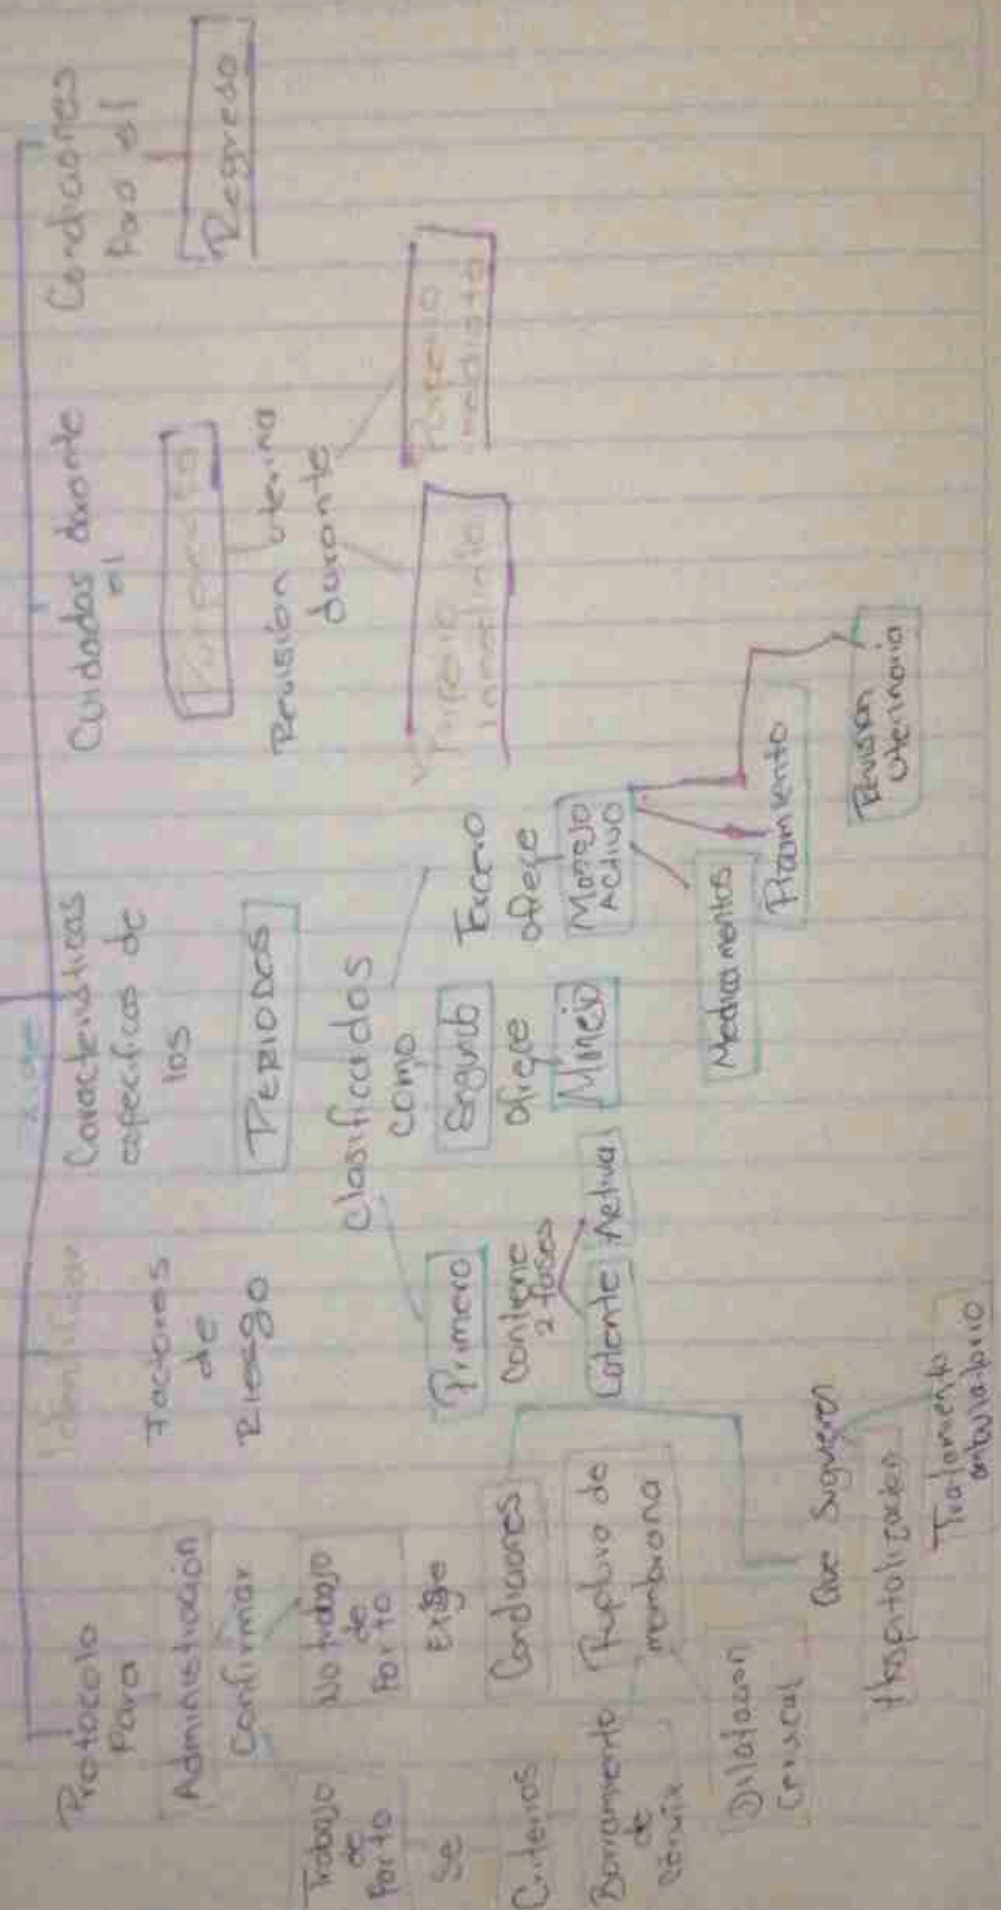 Protocolo
Para
Administración
Confirmar
Trabajo
de
Parto
No trabajo
de
Parto
Se
Exige
Criterios
Condiciones
Borramiento
de
Ruptura de
membrana
Dilatacion
Cervical
Que Sugieren
Hospitalizacion
Tratamiento
ambulatorio
Identificar
Factores
de
Riesgo
Características
especificas de
los
PERIODOS
Clasificados
como
Primero
Contiene
2 fases
Latente
Activa
Segundo
ofrece
Minejo
Tercero
ofrece
Manejo
Activo
Medicamentos
Pinzamiento
Revisión
Uterinaria
Cuidados durante
el
Puerperio
Revisión uterina
durante
Purperio
inmediato
Purperio
mediato
Condiciones
Para el
Regreso